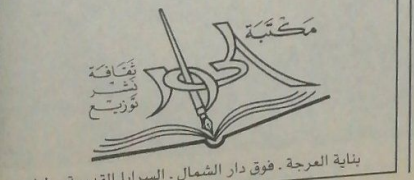 مَكْتَبَة
ثَقَافَة
نَشْر
تَوْزيع
بناية العرجة. فوق دار الشمال. السرايا